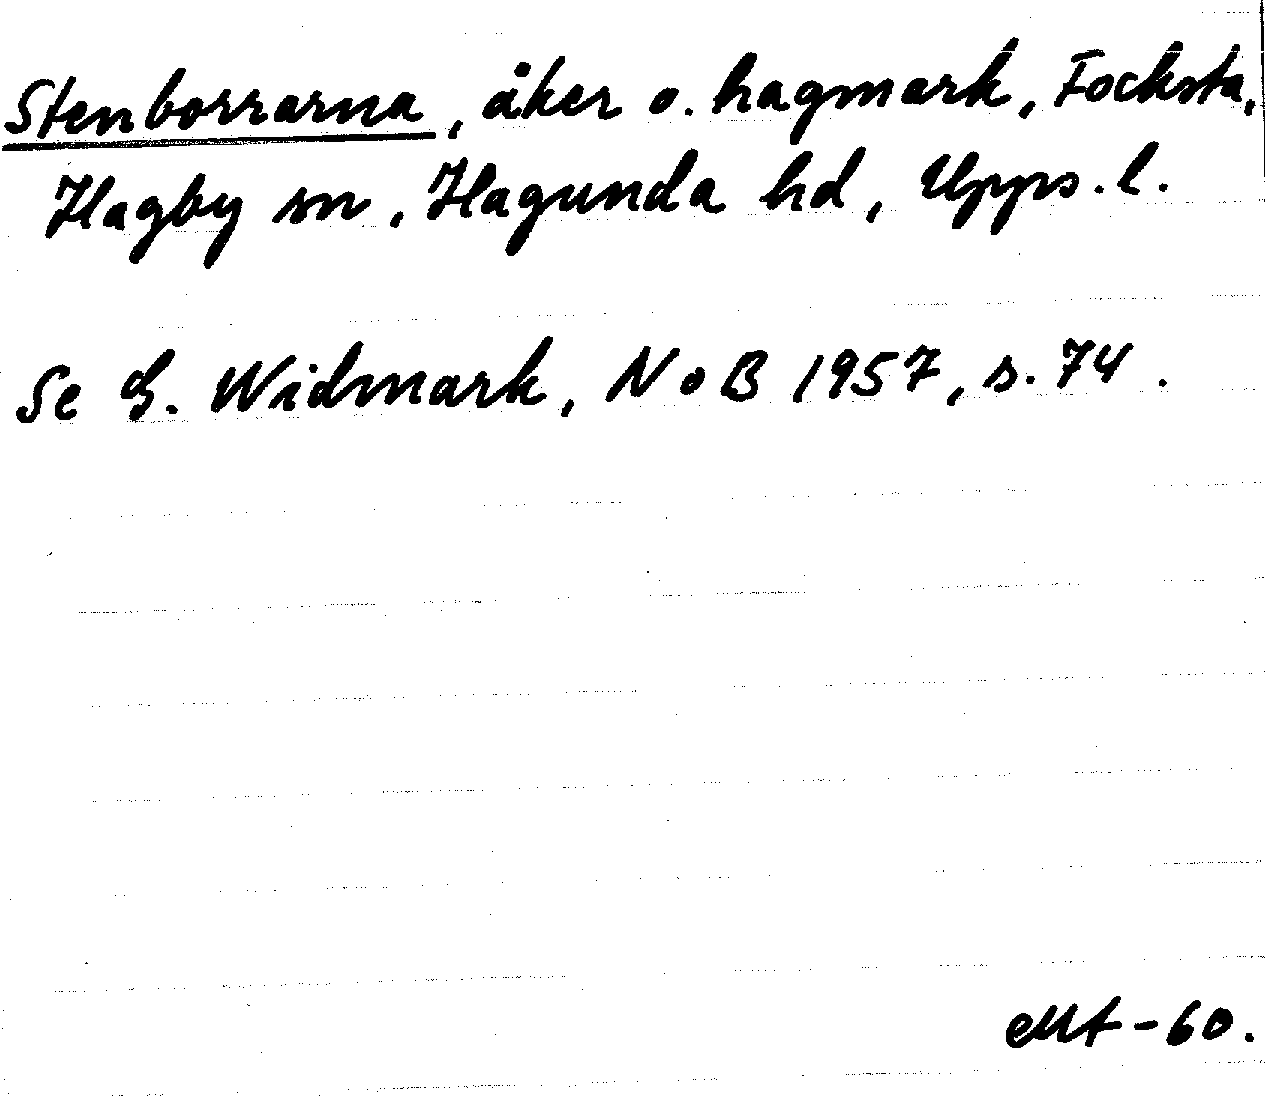 Stenborrarna, åker o. hagmark, Focksta,
Hagby sn, Hagunda hd, Upps. l.
Se G. Widmark, NoB 1957, s. 74.
-60.